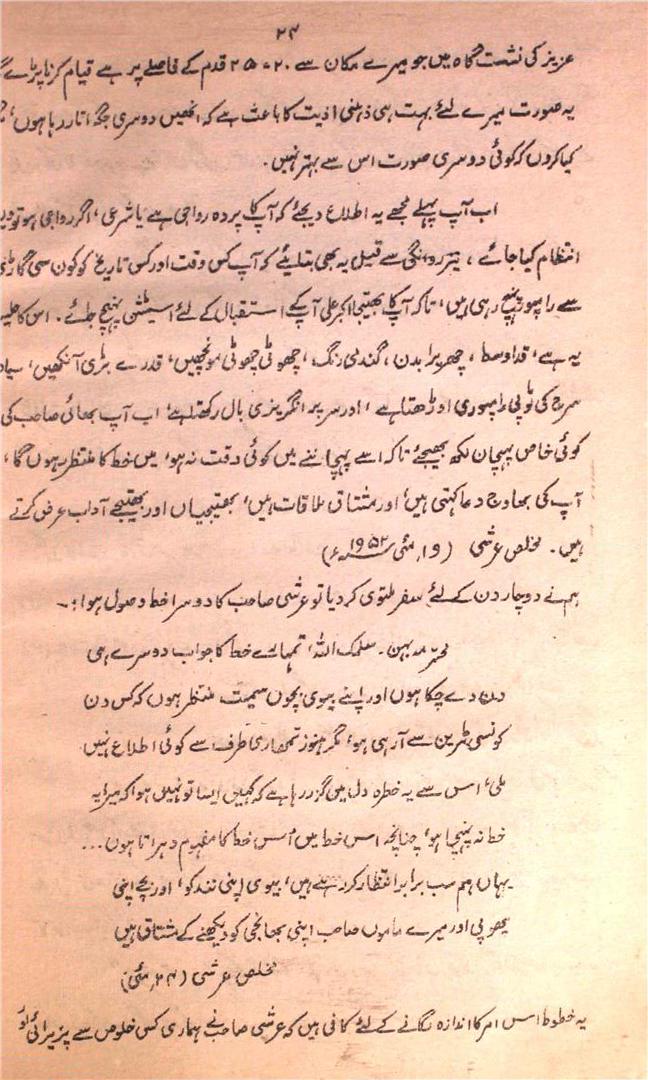 ۲۴
عزیز کی نشست گاہ میں جو میرے مکان سے ۲۰-۲۵ قدم کے فاصلے پر ہے قیام کرنا پڑے
یہ صورت میرے لئے بہت ہی ذہنی اذیت کا باعث ہے کہ انھیں دوسری جگہ اتار رہا ہوں،
کیا کروں کہ کوئی دوسری صورت اس سے بہتر نہیں۔
اب آپ پہلے مجھے یہ اطلاع دیجئے کہ آپ کا پردہ رواجی ہے یا شرعی، اگر رواجی ہو تو
انتظام کیا جائے، نیز روانگی سے قبل یہ بھی بتلایئے کہ آپ کس وقت اور کس تاریخ کو کون سی گاڑی
سے رامپور پہنچ رہی ہیں، تاکہ آپ کا بھتیجا اکبر علی آپ کے استقبال کے لئے اسٹیشن پہنچ جائے۔ اس کا حلیہ
یہ ہے، قد اوسط، چھریرا بدن، گندمی رنگ، چھوٹی چھوٹی مونچھیں، قدرے بڑی آنکھیں،
سرج کی ٹوپی رامپوری اوڑھتا ہے، اور سر پر انگریزی بال رکھتا ہے، اب آپ بھائی صاحب کی
کوئی خاص پہچان لکھ بھیجئے تاکہ اسے پہچاننے میں کوئی دقت نہ ہو، میں خط کا منتظر ہوں گا،
آپ کی بھاوج دعا کہتی ہیں، اور مشتاق ملاقات ہیں، بھتیجیاں اور بھتیجے آداب عرض کرتے
ہیں۔ مخلص عرشی (۱۹ مئی ۱۹۵۲ء)
ہم نے دو چار دن کے لئے سفر ملتوی کر دیا تو عرشی صاحب کا دوسرا خط وصول ہوا:۔
محترمہ بہن۔ سلمک اللہ، تمہارے خط کا جواب دوسرے ہی
دن دے چکا ہوں اور اپنے بیوی بچوں سمیت منتظر ہوں کہ کس دن
کونسی ٹرین سے آ رہی ہو، مگر ہنوز تمہاری طرف سے کوئی اطلاع نہیں
ملی، اس سے یہ خطرہ دل میں گزر رہا ہے کہ کہیں ایسا تو نہیں ہوا کہ میرا یہ
خط نہ پہنچا ہو، چنانچہ اس خط میں اُس خط کا مفہوم دہراتا ہوں...
یہاں ہم سب برابر انتظار کر رہے ہیں، بیوی اپنی نند کو، اور بچے اپنی
پھوپی اور میرے ماموں صاحب اپنی بھانجی کو دیکھنے کے مشتاق ہیں
مخلص عرشی (۲۴ مئی)
یہ خطوط اس امر کا اندازہ لگانے کے لئے کافی ہیں کہ عرشی صاحب نے ہماری کس خلوص سے پزیرائی اور